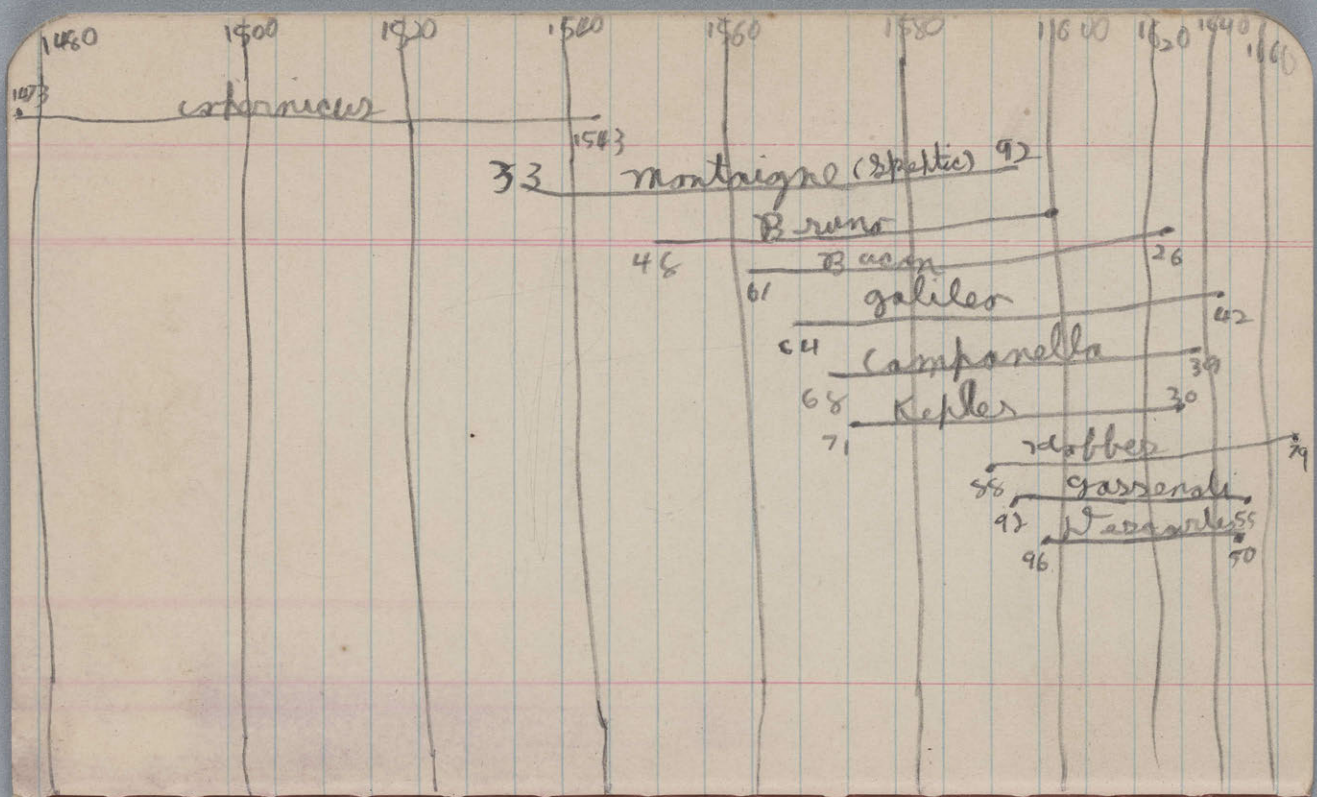 1480 1500 1520 1540 1560 1580 1600 1620 1640 1660
1473 Copernicus 1543
33 Montaigne (Skeptic) 92
48 Bruno
61 Bacon 26
64 Galileo 42
68 Campanella 39
71 Kepler 30
88 Hobbes 79
92 Gassendi 55
96 Descartes 50